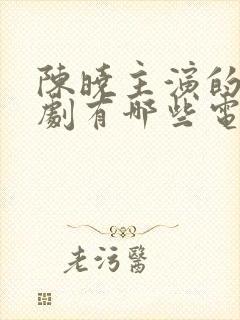 陳曉主演的
劇有哪些電
老污醫